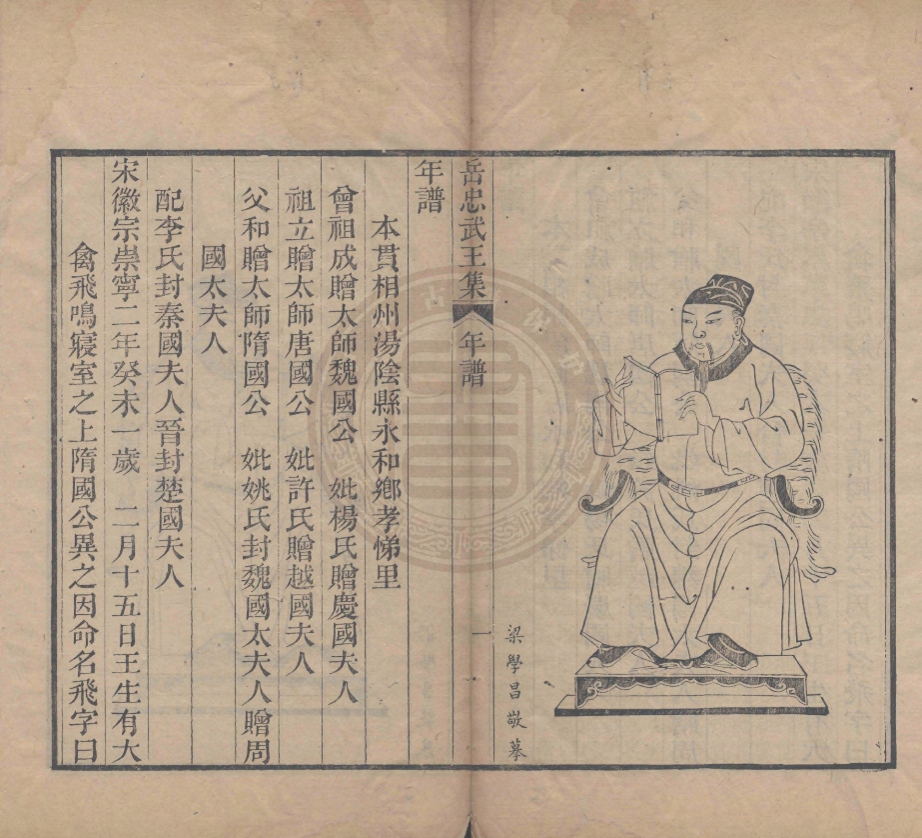 梁學昌敬摹
岳忠武王集 年譜 一
年譜
本貫相州湯陰縣永和鄉孝悌里
曾祖成贈太師魏國公 妣楊氏贈慶國夫人
祖立贈太師唐國公 妣許氏贈越國夫人
父和贈太師隋國公 妣姚氏封魏國太夫人贈周
國太夫人
配李氏封秦國夫人晉封楚國夫人
宋徽宗崇寧二年癸未一歲 二月十五日王生有大
禽飛鳴寢室之上隋國公異之因命名飛字曰